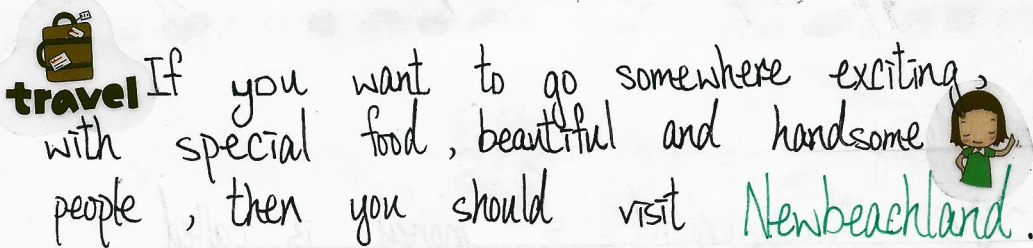 travel If you want to go somewhere exciting,
with special food, beautiful and handsome
people, then you should visit Newbeachland.